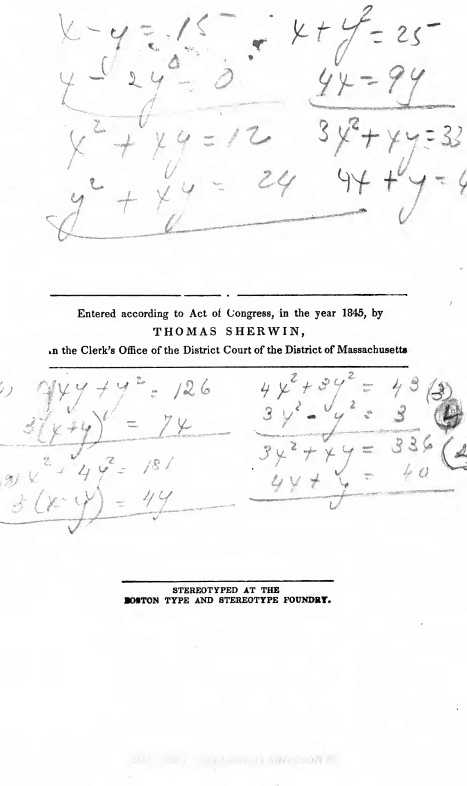 x - y = 15
y - 2y = 0
x² + xy = 12
y² + xy = 24
x + y² = 25
4x = 9y
3x² + xy = 33
4x + y = 4
Entered according to Act of Congress, in the year 1845, by
THOMAS SHERWIN,
in the Clerk's Office of the District Court of the District of Massachusetts
4xy + y² = 126
3(x+y) = 7x
x² + 4y² = 181
3(x-y) = 4y
4x² + 3y² = 43 (3)
3y² - y² = 3 (4)
3x² + xy = 336
4x + y = 40
STEREOTYPED AT THE
BOSTON TYPE AND STEREOTYPE FOUNDRY.